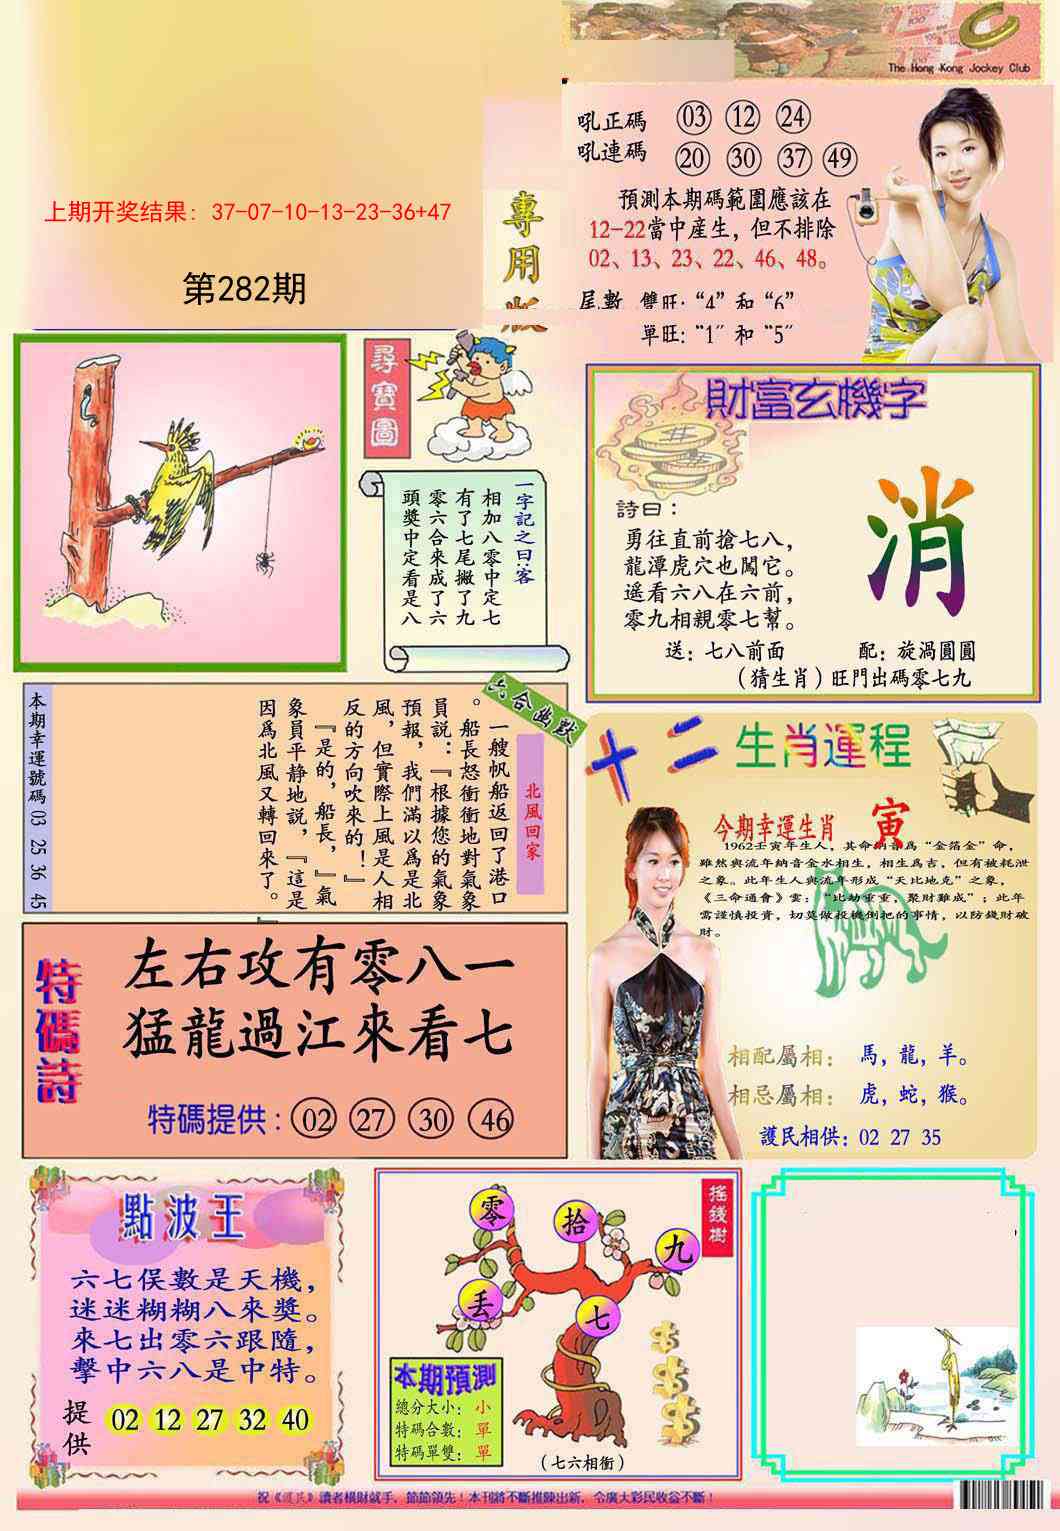 The Hong Kong Jockey Club
上期开奖结果: 37-07-10-13-23-36+47
第282期
專用版
吼正碼 03 12 24
吼連碼 20 30 37 49
預測本期碼範圍應該在
12-22當中産生，但不排除
02、13、23、22、46、48。
尾數 雙旺:“4”和“6”
單旺:“1”和“5”
尋寶圖
一字記之曰:客
相加八零中定七
有了七尾撇了九
零六合來成了六
頭獎中定看是八
財富玄機字
詩曰：
勇往直前搶七八，
龍潭虎穴也闖它。
遥看六八在六前，
零九相親零七幫。
消
送：七八前面 配：旋渦圓圓
（猜生肖）旺門出碼零七九
六合幽默
北風回家
一艘帆船返回了港口
。船長怒衝衝地對氣象
員説：『根據您的氣象
預報，我們滿以爲是北
風，但實際上風是人相
反的方向吹來的！』
『是的，船長，』氣
象員平静地説，『這是
因爲北風又轉回來了。
本期幸運號碼 03 25 36 45
十二生肖運程
今期幸運生肖 寅
1962壬寅年生人，其命納音爲“金箔金”命，
雖然與流年納音金水相生，相生爲吉，但有被耗泄
之象。此年生人與流年形成“天比地克”之象，
《三命通會》雲：“比劫重重，聚財難成”；此年
需謹慎投資，切莫做投機倒把的事情，以防錢財破
財。
相配屬相： 馬，龍，羊。
相忌屬相： 虎，蛇，猴。
護民相供：02 27 35
特碼詩
左右攻有零八一
猛龍過江來看七
特碼提供：02 27 30 46
點波王
六七俣數是天機，
迷迷糊糊八來獎。
來七出零六跟隨，
擊中六八是中特。
提供 02 12 27 32 40
搖錢樹
零
拾
九
丢
七
本期預測
總分大小：小
特碼合數：單
特碼單雙：單
（七六相衝）
祝《護民》讀者横財就手，節節領先！本刊將不斷推陳出新，令廣大彩民收益不斷！